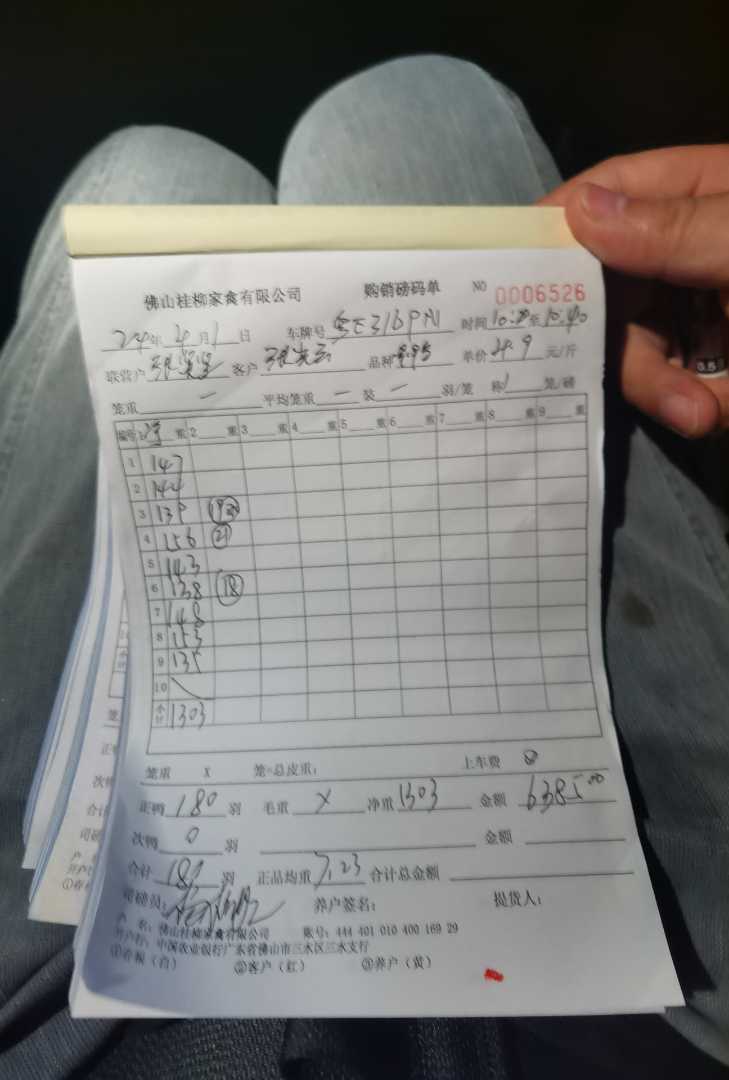 佛山桂柳家禽有限公司 购销磅码单 NO 0006526
24年4月1日 车牌号 粤E316PN 时间10:20至10:40
联营户 张 客户 张 品种 单价 4.9 元/斤
笼重 一 平均笼重 一 装 一 羽/笼 称 1 笼/磅
编号 1 净重 2 重 3 重 4 重 5 重 6 重 7 重 8 重 9 重
1 147
2 144
3 139
4 156 21
5 143
6 138 18
7 148
8 153
9 135
10
小计 1303
笼重 X 笼=总皮重: 上车费
正鸭 180 羽 毛重 X 净重 1303 金额 6385.00
次鸭 0 羽 金额
合计 180 羽 正品均重 7.23 合计总金额
司磅员: 养户签名: 提货人:
户 名: 佛山桂柳家禽有限公司 账号: 444 401 010 400 169 29
开户行: 中国农业银行广东省佛山市三水区三水支行
①存根(白) ②客户(红) ③养户(黄)